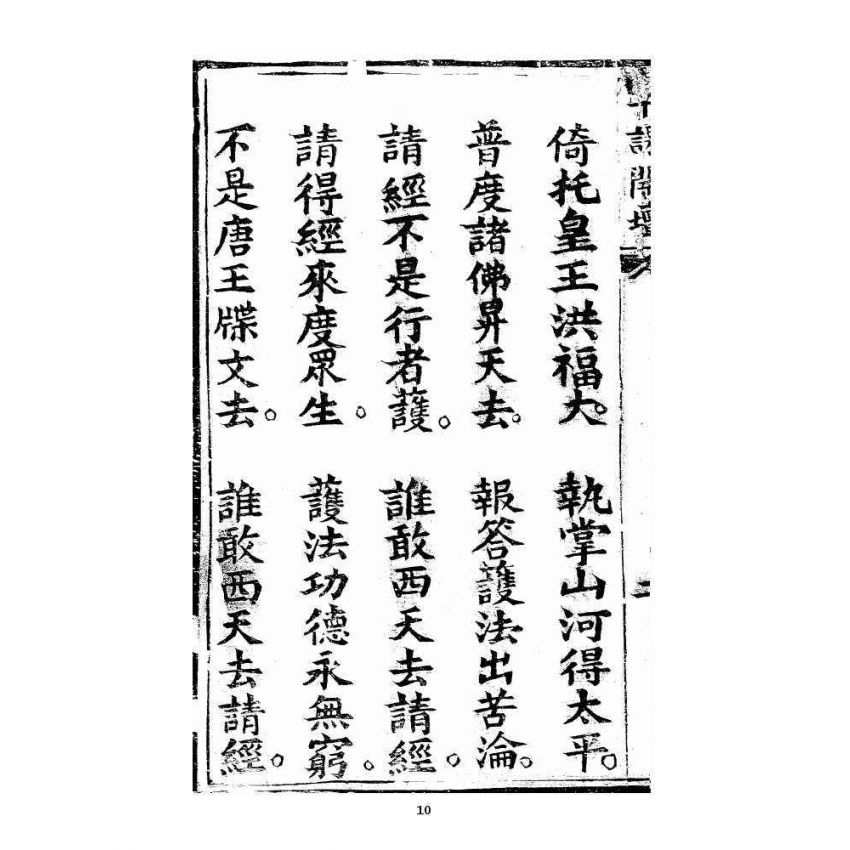 倚托皇王洪福大。 執掌山河得太平。
普度諸佛昇天去。 報答護法出苦淪。
請經不是行者護。 誰敢西天去請經。
請得經來度眾生。 護法功德永無窮。
不是唐王牒文去。 誰敢西天去請經。
10